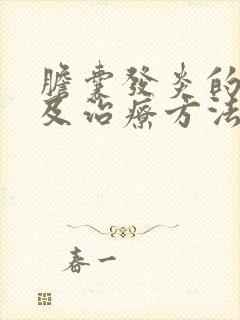 膽囊發炎的
及治療方法
春一